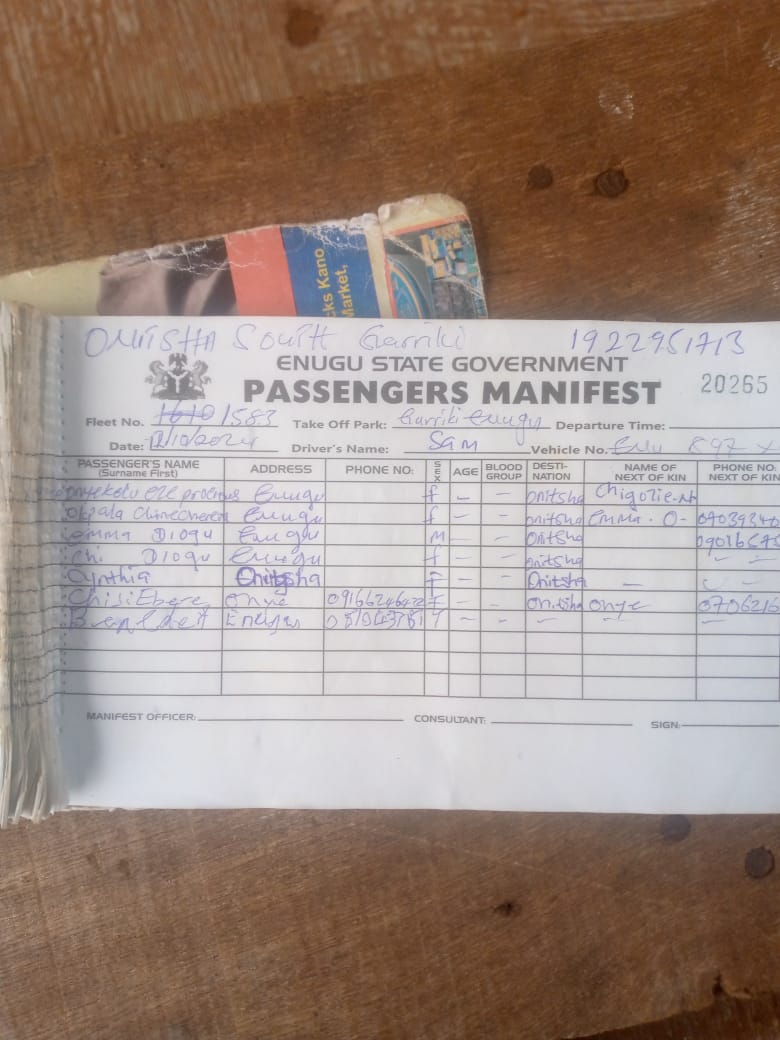 ks Kano
Market,
ONITSHA South Garriki 1922951713
ENUGU STATE GOVERNMENT
PASSENGERS MANIFEST 20265
Fleet No. 1610 1583 Take Off Park: Garriki Enugu Departure Time:
Date: 12/10/2024 Driver's Name: Sam Vehicle No. Enu 897 X
PASSENGER'S NAME (Surname First) ADDRESS PHONE NO: SEX AGE BLOOD GROUP DESTI-NATION NAME OF NEXT OF KIN PHONE NO: NEXT OF KIN
Enugu f – – onitsha Chigozie
Okpala Chinecherem Enugu f – – onitsha Emma . O-
Emma Diogu Enugu M – – Onitsha
Chi Diogu Enugu f – – onitsha
Cynthia Onitsha F – – Onitsha –
ChisiEbere onye f – – onitsha onye
Enugu f – – – – –
MANIFEST OFFICER: CONSULTANT: SIGN: